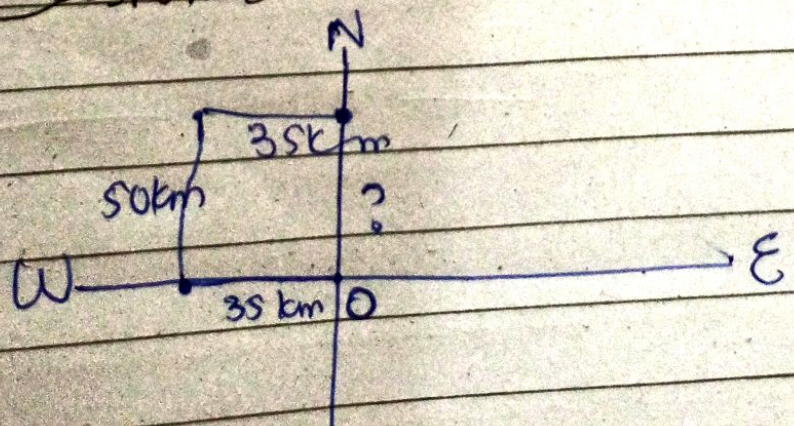 N
35km
50km
?
W
E
35 km
O